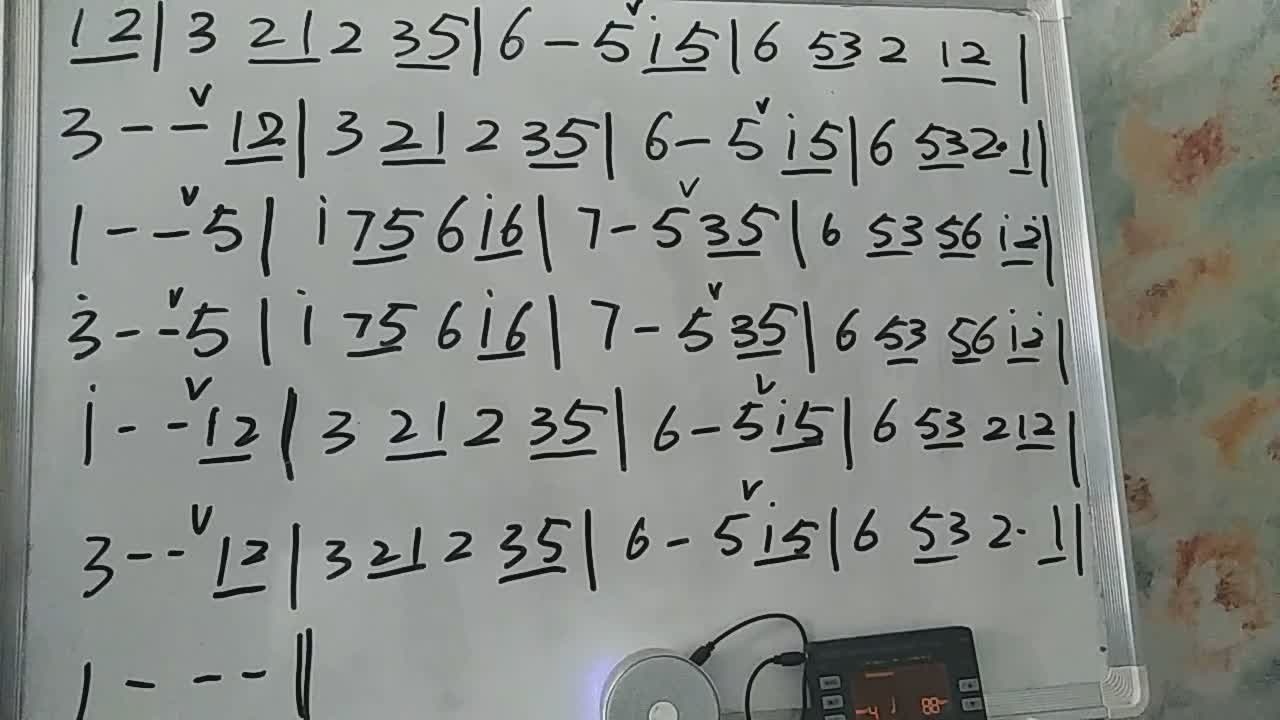 12 | 3 21 2 35 | 6 – 5 ∨ i5 | 6 53 2 12 |
3 – – ∨ 12 | 3 21 2 35 | 6 – 5 ∨ i5 | 6 53 2· 1 |
1 – – ∨ 5 | i 75 6 i6 | 7 – 5 ∨ 35 | 6 53 56 i2̇ |
3̇ – – ∨ 5 | i 75 6 i6 | 7 – 5 ∨ 35 | 6 53 56 i2̇ |
i – – ∨ 12 | 3 21 2 35 | 6 – 5 ∨ i5 | 6 53 2 12 |
3 – – ∨ 12 | 3 21 2 35 | 6 – 5 ∨ i5 | 6 53 2· 1 |
1 – – – ‖
-4 88